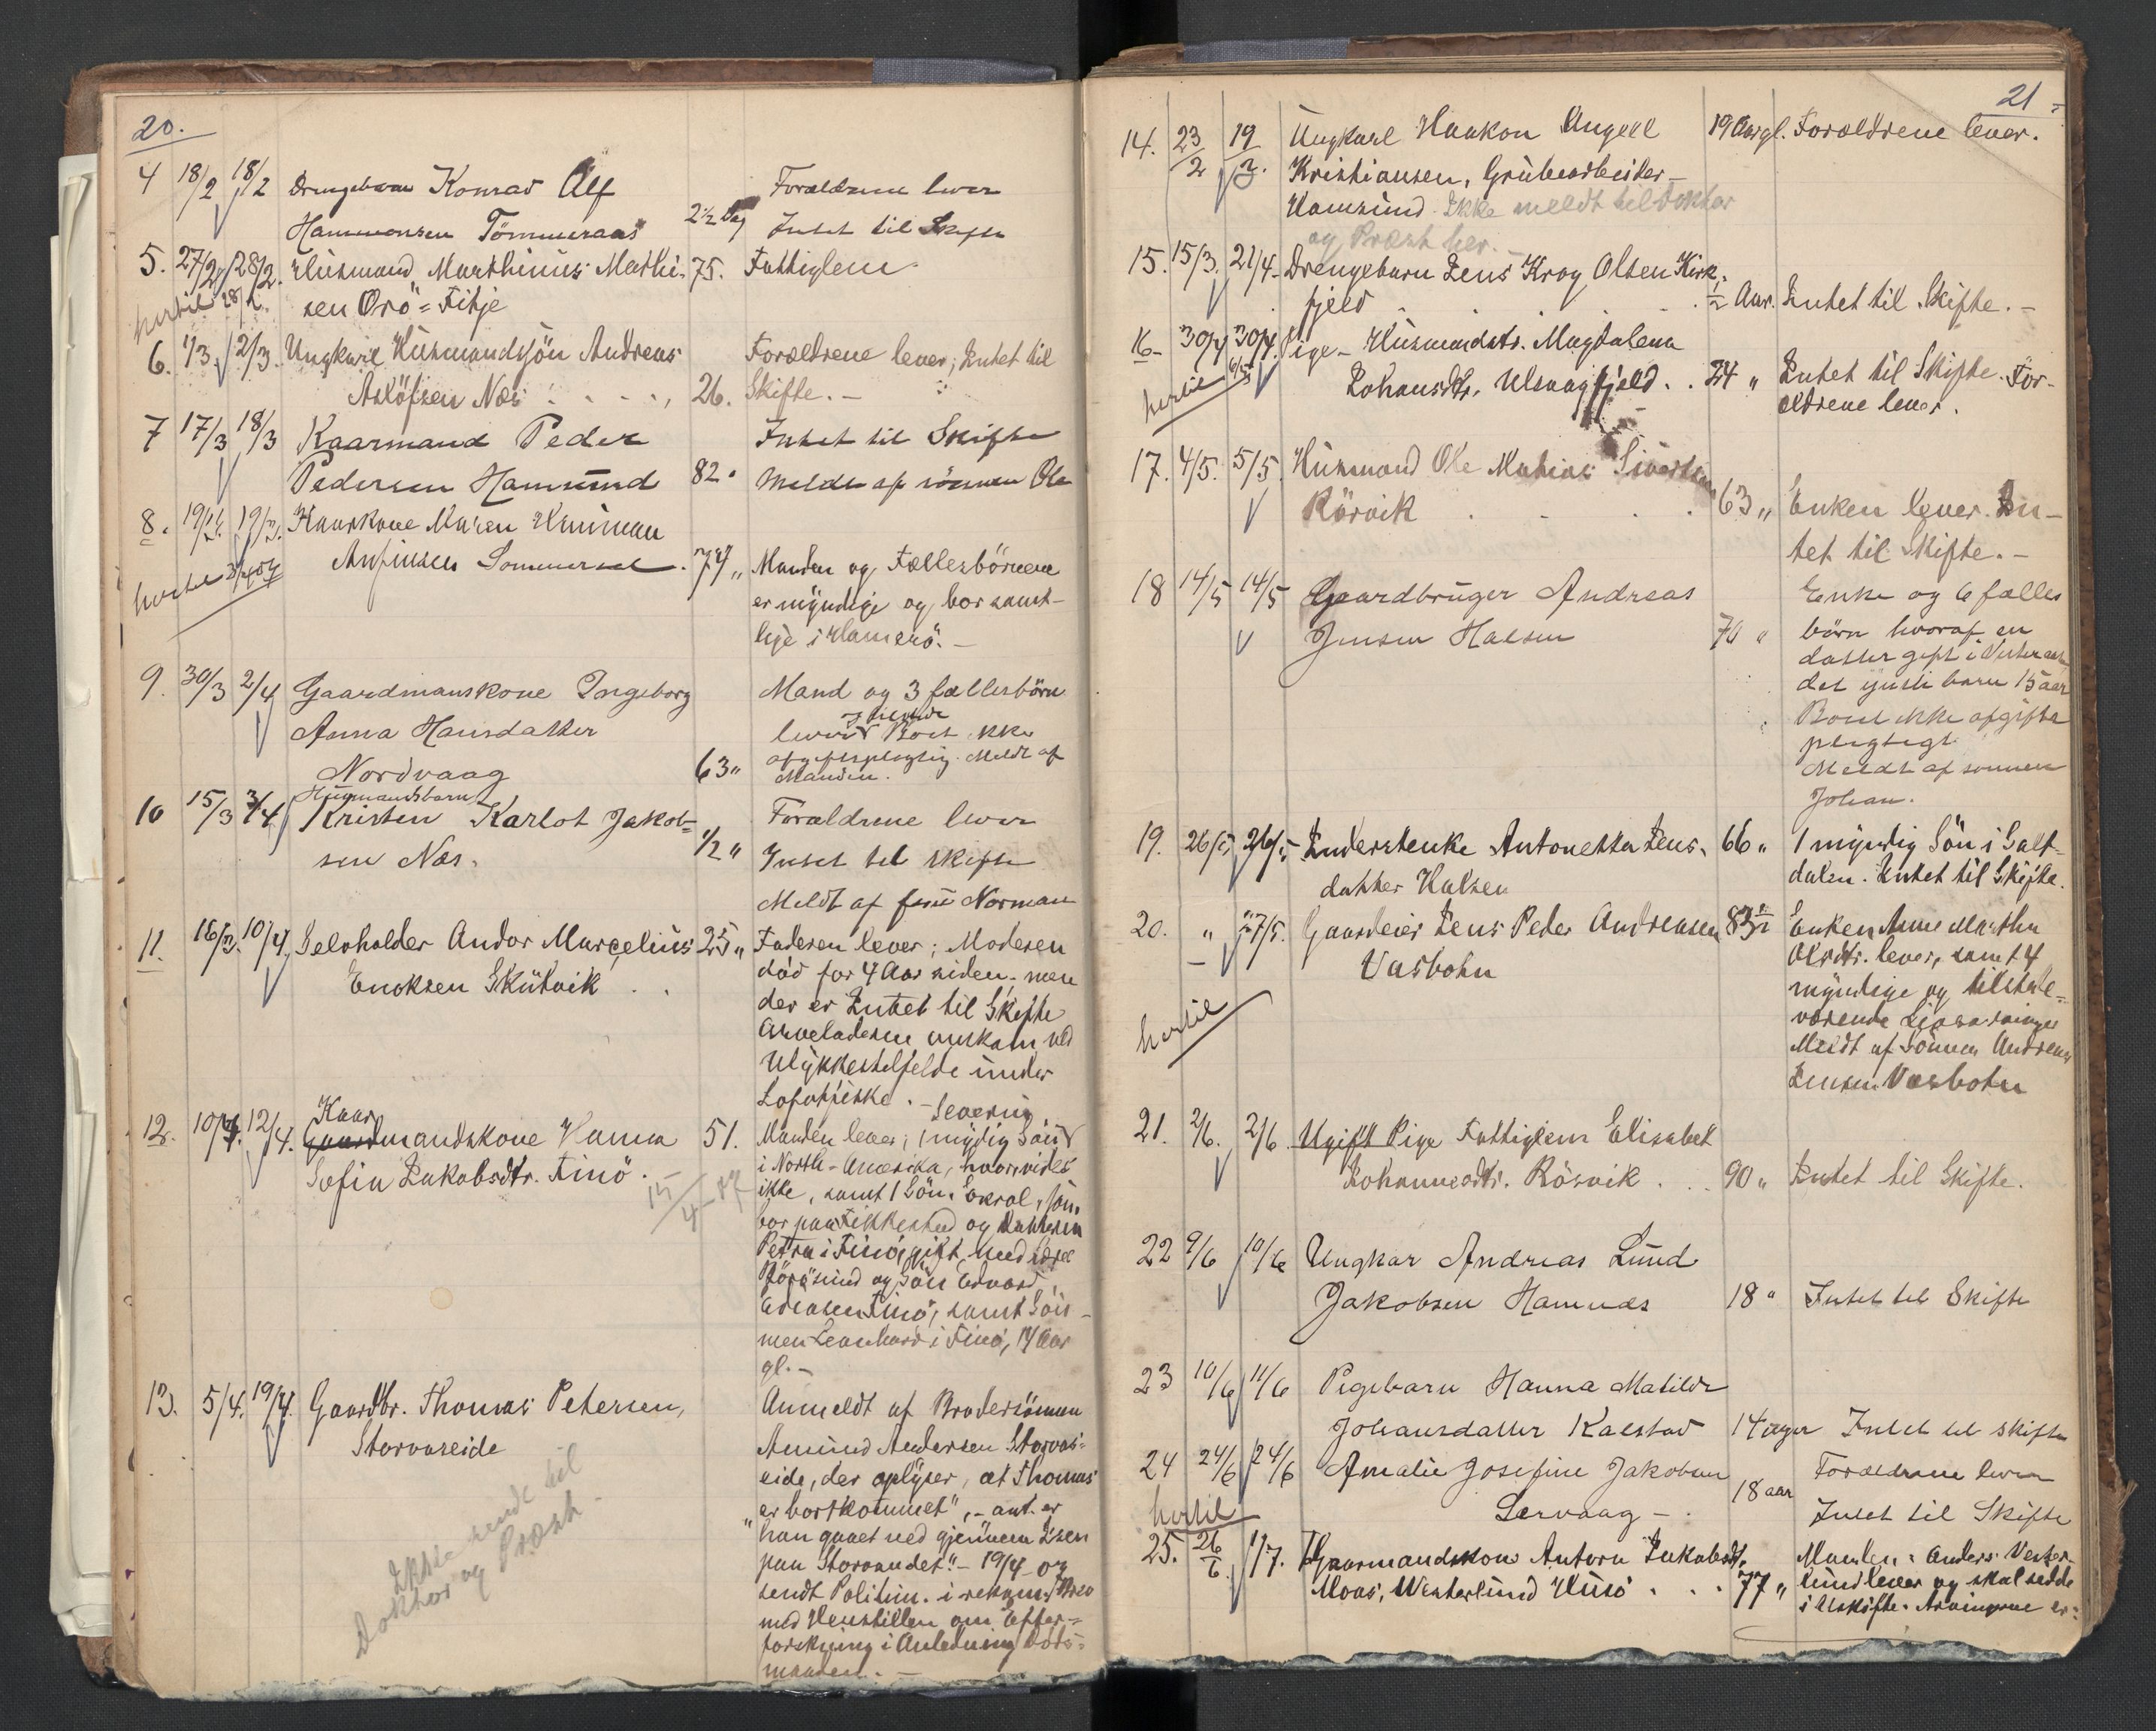 20.
4 18/2 18/2 Drengebarn Konrad Alf Forældrene lever
Hammonsen Tömmeraas 2 1/2 Dag Intet til Skifte
5. 27/2 28/2. Husmand Marthinus Mathi- 75. Fattiglem
hertil 28/2. sen Orö = Fikje
6. 1/3. 2/3. Ungkarl Husmandssön Andreas Forældrene lever; Intet til
Aslöfsen Næs . . . . , 26. Skifte. -
7 17/3 18/3 Kaarmand Peder Intet til Skifte
Pedersen Hamsund 82 " Meldt af sönnen Ole
8. 19/3. 19/3. Kaarkone Maren
Anfinsen Sommersel . 74 " Manden og Fællesbörnene
hertil er myndige og bor samt-
lige i Hamerö. -
9. 30/3 2/4 Gaardmanskone Ingeborg Mand og 3 fællesbörn
Anna Hansdatter lever Boet ikke
Nordvaag 63 " afgiftspligtig. Meldt af
Manden.
Husmandsbarn
10 15/3 3/4 Kristen Karlot Jakob= Forældrene lever
sen Næs. 1/2 " Intet til skifte
Meldt af fru Norman
11. 16/3. 10/4. Selvholder Andor Marcelius 25 " Faderen lever; Moderen
Enoksen Skutvik . . död for 4 Aar siden, men
der er Intet til Skifte
Arveladeren omkam ved
Ulykkestilfelde under
Lofotfiske. -
Kaar Severin
12. 10/4. 12/4. mandskone Hanna 51. Manden lever; 1 myndig Sön
Sofia Jakobsdtr. Finö. - i North-Amerika, hvor vides
15/4-07 ikke, samt 1 Sön,
bor paa og Datteren
Petra i Finö, gift med
og Sön Edvard
Finö, samt Sön-
nen Leonhard i Finö, 14 Aar
gl. -
13. 5/4. 19/4. Gaardbr. Thomas Petersen, Anmeldt af Brodersönnen
Storvaseide Amund Andersen Storvas-
eide, der oplyser, at Thomas
"er bortkommet", - ant. er
"han gaaet ned gjennem Isen
paa Storvandet." - 19/4 og
sendt Politim. i rekom. Brev
med Henstillen om Efter-
forskning i Anledning Döds-
maaden. -
Ikke sende til
Doktor og Præst
21
14. 23/2 19/3. Ungkarl Haakon Angell 19 Aar gl. Forældrene lever.
Kristiansen, Grubearbeider -
Hamsund. Ikke meldt til Doktor
og Præst her. -
15. 15/3. 21/4. Drengebarn Jens Krog Olsen Kirk-
fjeld . . 1/2 Aar. Intet til Skifte. -
16- 30/4 30/4. Pige - Husmandsdtr. Magdalena
hertil 6/5 Johansdtr. Ulsvagfjeld . . 24 " Intet til Skifte. For-
ældrene lever.
17. 4/5. 5/5. Husmand Ole Mathias Sivertsen
Rörvik . . . . 63 " Enken lever. In-
tet til Skifte. -
18 14/5 14/5 Gaardbruger Andreas Enke og 6 fælles
Jensen Halsen 70 " börn hvoraf en
datter gift i
det yngste barn 15 aar
Boet ikke afgifts
pligtigt.
Meldt af sonnen
Johan.
19. 26/5 26/5 Inderstenke Antonetta Jens- 66 " 1 myndig Sön i Salt-
datter Halsen dalen. Intet til Skifte.
20. " 27/5. Gaardeier Jens Peder Andreasen 83 1/2 Enken Anne Martha
Vasbotn Olsdtr. lever, samt 4
hertil myndige og tilstede-
værende Livsarvinger
Meldt af Sönnen Andreas
Jensen Vasbotn
21. 2/6. 2/6. Ugift Pige Fattiglem Elisabet
Johannesdtr. Rösvik . . . 90 " Intet til Skifte.
22 9/6 10/6 Ungkar Andreas Lund
Jakobsen Hamnås 18 " Intet til Skifte
23 10/6 11/6 Pigebarn Hanna Matilde
Johansdatter Kalstad 14 dager Intet til skifte
24 24/6 24/6 Amalie Josefine Jakobsen 18 aar Forældrene lever
hertil Lervaag - . Intet til Skifte
25. 26/6 1/7. Gaarmandskone Antora Jakobsdt. Manden: Anders Vester-
Moas, Westerlund Husö . . . 77 " lund lever og skal sidde
i Uskifte. Arvingerne er: